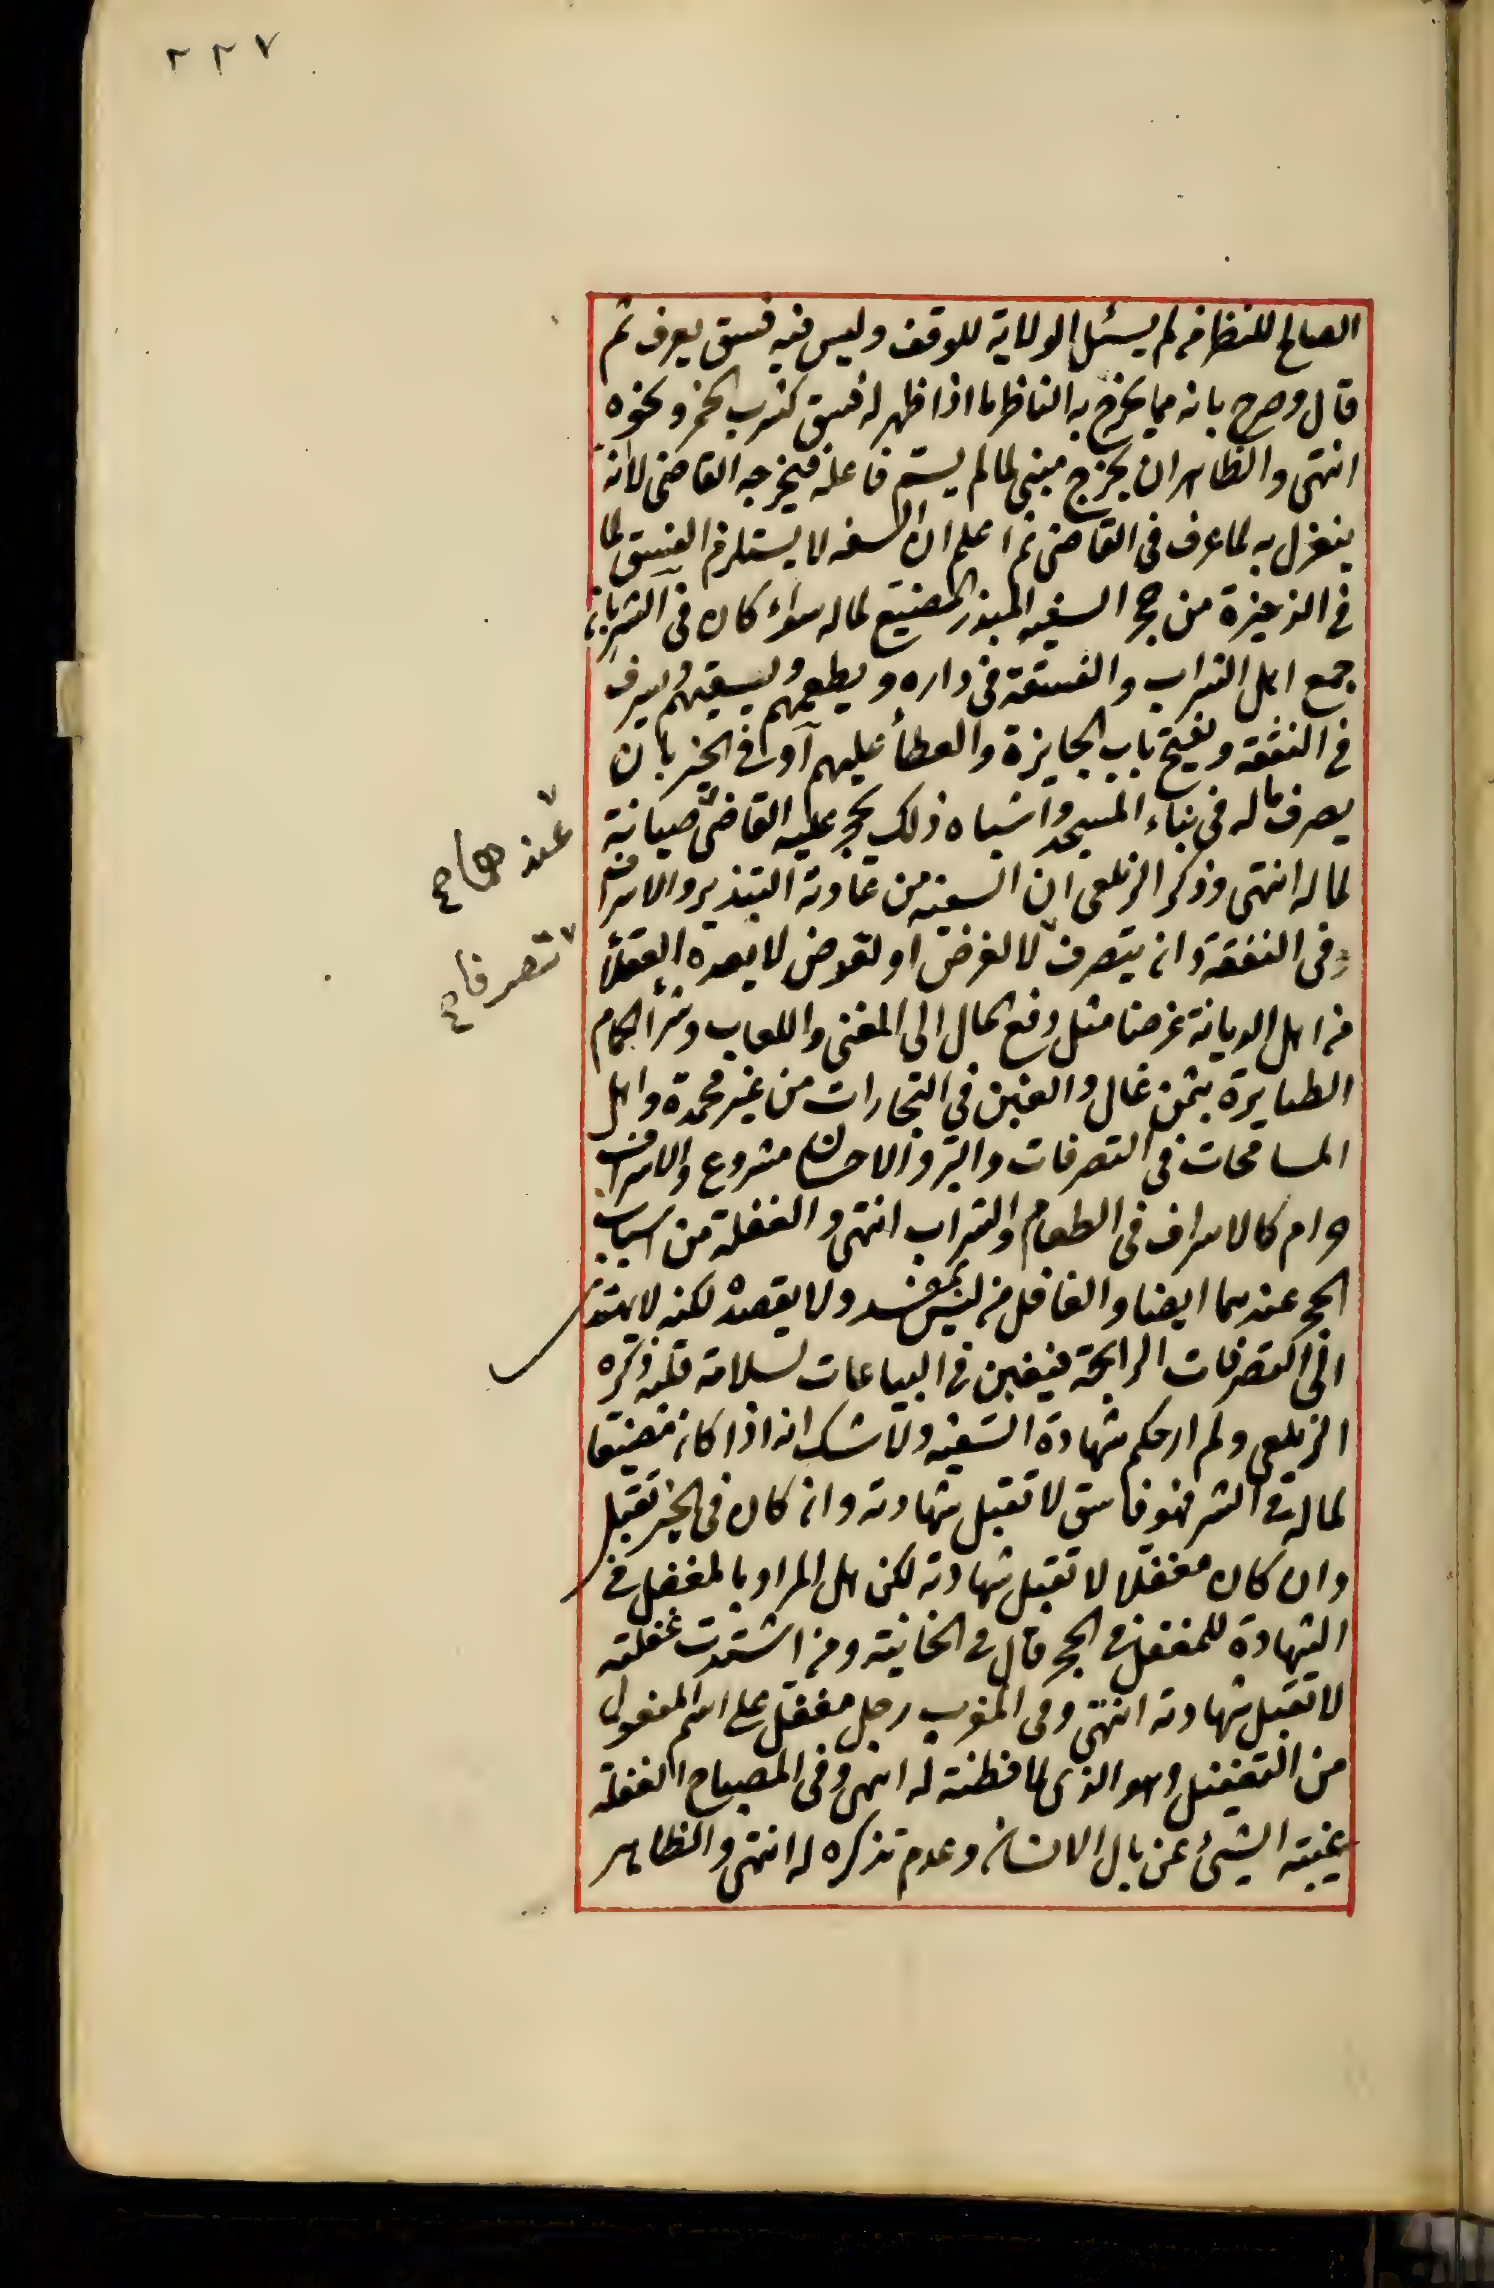 ٢٢٧
الصالح للنظر من لم يسئل الولاية للوقف وليس فيه فسق يعرف ثم
قال وصرح بانه مما يخرج به الناظر ما اذا ظهر له فسق كشرب الخمر ونحوه
انتهى والظاهر ان يخرج مبنى لما لم يسم فاعله فيخرجه القاضى لا انه
ينعزل به لما عرف فى القاضى ثم اعلم ان السفه لا يستلزم الفسق لما
فى الذخيرة من حجر السفيه المبذر المضيع لماله سواء كان فى الشر بان
جمع اهل الشراب والفسقة فى داره ويطعمهم ويسقيهم ويسرف
فى النفقة ويفتح باب الجايزة والعطأ عليهم او فى الخير بان
يصرف ماله فى بناء المسجد واشباه ذلك يحجر عليه القاضى صيانة
عندهما صح
لماله انتهى وذكر الزيلعى ان السفيه من عادته التبذير والاسراف
فى النفقة وان يتصرف لا لغرض او لغرض لا يعده العقلأ
تصرفا صح
من اهل الديانة غرضا مثل دفع المال الى المغنى واللعاب وشرأ الحمام
الطيارة بثمن غال والغبن فى التجارات من غير محمدة واهل
المسامحات فى التصرفات والبر والاحسان مشروع والاسراف
حرام كالاسراف فى الطعام والشراب انتهى والغفلة من اسباب
الحجر عندهما ايضا والغافل من ليس بمفسد ولا يقصده لكنه لا يهتدى
الى التصرفات الرابحة فيغبن فى البياعات لسلامة قلبه ذكره
الزيلعى ولم ار حكم شهادة السفيه ولا شك انه اذا كان مضيعا
لماله فى الشر فهو فاسق لا تقبل شهادته وان كان فى الخير تقبل
وان كان مغفلا لا تقبل شهادته لكن هل المراد بالمغفل فى
الشهادة للمغفل فى الحجر قال فى الخانية ومن اشتدت غفلته
لا تقبل شهادته انتهى وفى المغرب رجل مغفل على اسم المفعول
من التغفيل وهو الذى لا فطنة له انتهى وفى المصباح الغفلة
غيبة الشيئ عن بال الانسان وعدم تذكره له انتهى والظاهر